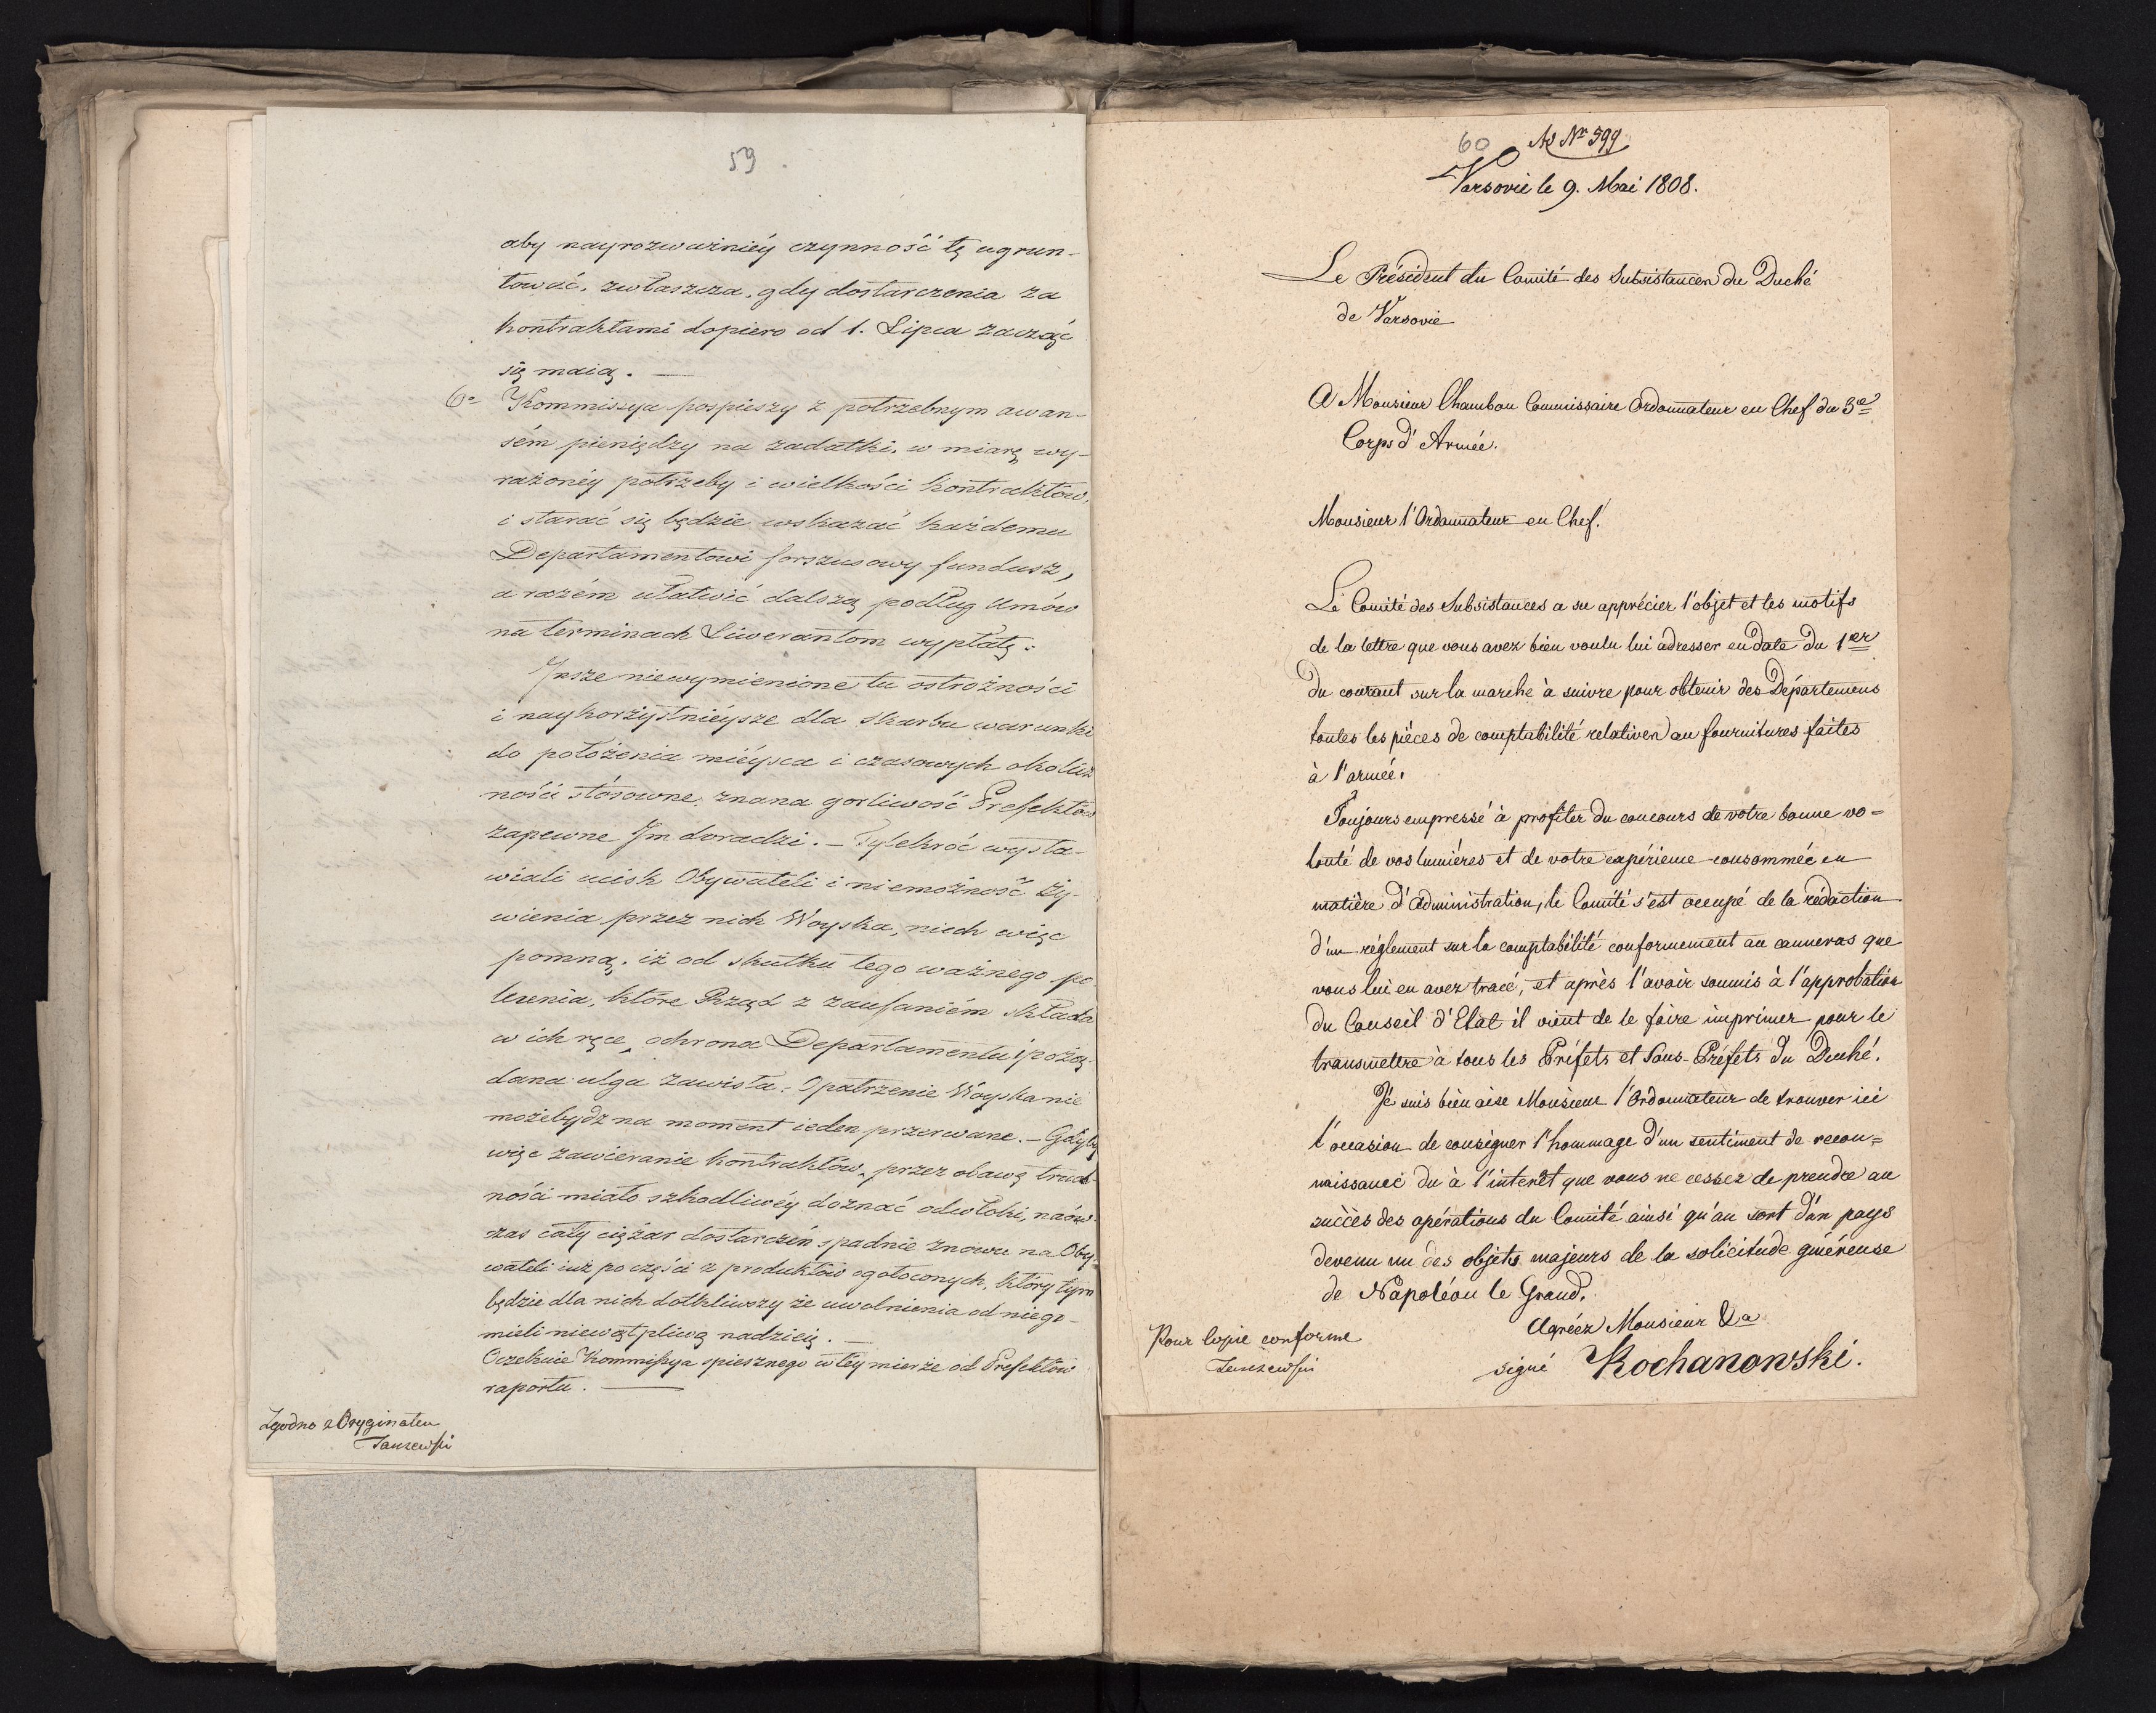 59
aby nayrozważniéy czynność tę ugrun-
tować, zwłaszcza, gdy dostarczenia za
kontraktami dopiero od 1. Lipca zacząć
się maią. —
6o Kommissya pospieszy z potrzebnym awan-
sém pieniędzy na zadatki, w miarę wy-
rażonéy potrzeby i wielkości kontraktów,
i starać się będzie wskazać każdemu
Departamentowi forszusowy fundusz,
a razém ułatwić dalszą podług Umów
na terminach Liwerantom wypłatę.
Insze niewymienione tu ostrożności
i naykorzystniéysze dla skarbu warunki
do położenia miéysca i czasowych okolicz
ności stósowne, znana gorliwość Prefektów
zapewne Im doradzi. — Tylekroć wysta-
wiali ucisk Obywateli i niemożność ży-
wienia przez nich Woyska, niech więc
pomną, iż od skutku tego ważnego po-
lecenia, które Rząd z zaufaniém składa
w ich ręce, ochrona Departamentu i pożą-
dana ulga zawisła. Opatrzenie Woyska nie
możebydz na moment ieden przerwane. — Gdyby
więc zawieranie kontraktów, przez obawę trud-
ności miało szkodliwéy doznać odwłoki, naów-
czas cały ciężar dostarczeń spadnie znowu na Oby-
wateli iuż po części z produktów ogołoconych, który tym
będzie dla nich dotkliwszy że uwolnienia od niego
mieli niewątpliwą nadzieię. —
Oczekuie Kommissya spiesznego w téy mierze od Prefektów
raportu. —
Zgodno z Oryginałem
Januszewski
60 Ad Nr 399
Varsovie le 9. Mai 1808.
Le Président du Comité des Subsistances du Duché
de Varsovie
A Monsieur Chambon Commissaire Ordonnateur en Chef du 3e
Corps d'Armée.
Monsieur l'Ordonnateur en Chef!
Le Comité des Subsistances a su apprécier l'objet et les motifs
de la lettre que vous avez bien voulu lui adresser en date du 1er
du courant sur la marche à suivre pour obtenir des Départemens
toutes les pièces de comptabilité relatives au fournitures faites
à l'armée.
Toujours empressé à profiter du concours de votre bonne vo=
lonté de vos lumières et de votre expérience consommée en
matière d'administration, le Comité s'est occupé de la rédaction
d'un réglement sur la comptabilité conformement au canneras que
vous lui en avez tracé, et après l'avoir soumis à l'approbation
du Conseil d'Etat il vient de le faire imprimer pour le
transmettre à tous les Préfets et Sous-Préfets du Duché.
Je suis bien aise Monsieur l'Ordonnateur de trouver ici
l'occasion de consigner l'hommage d'un sentiment de recon=
naissance du à l'interêt que vous ne cessez de prendre au
succès des opérations du Comité ainsi qu'au sort d'un pays
devenu un des objets majeurs de la solicitude généreuse
de Napoléon le Grand.
Agréez Monsieur &a
Pour Copie conforme
signé Kochanowski.